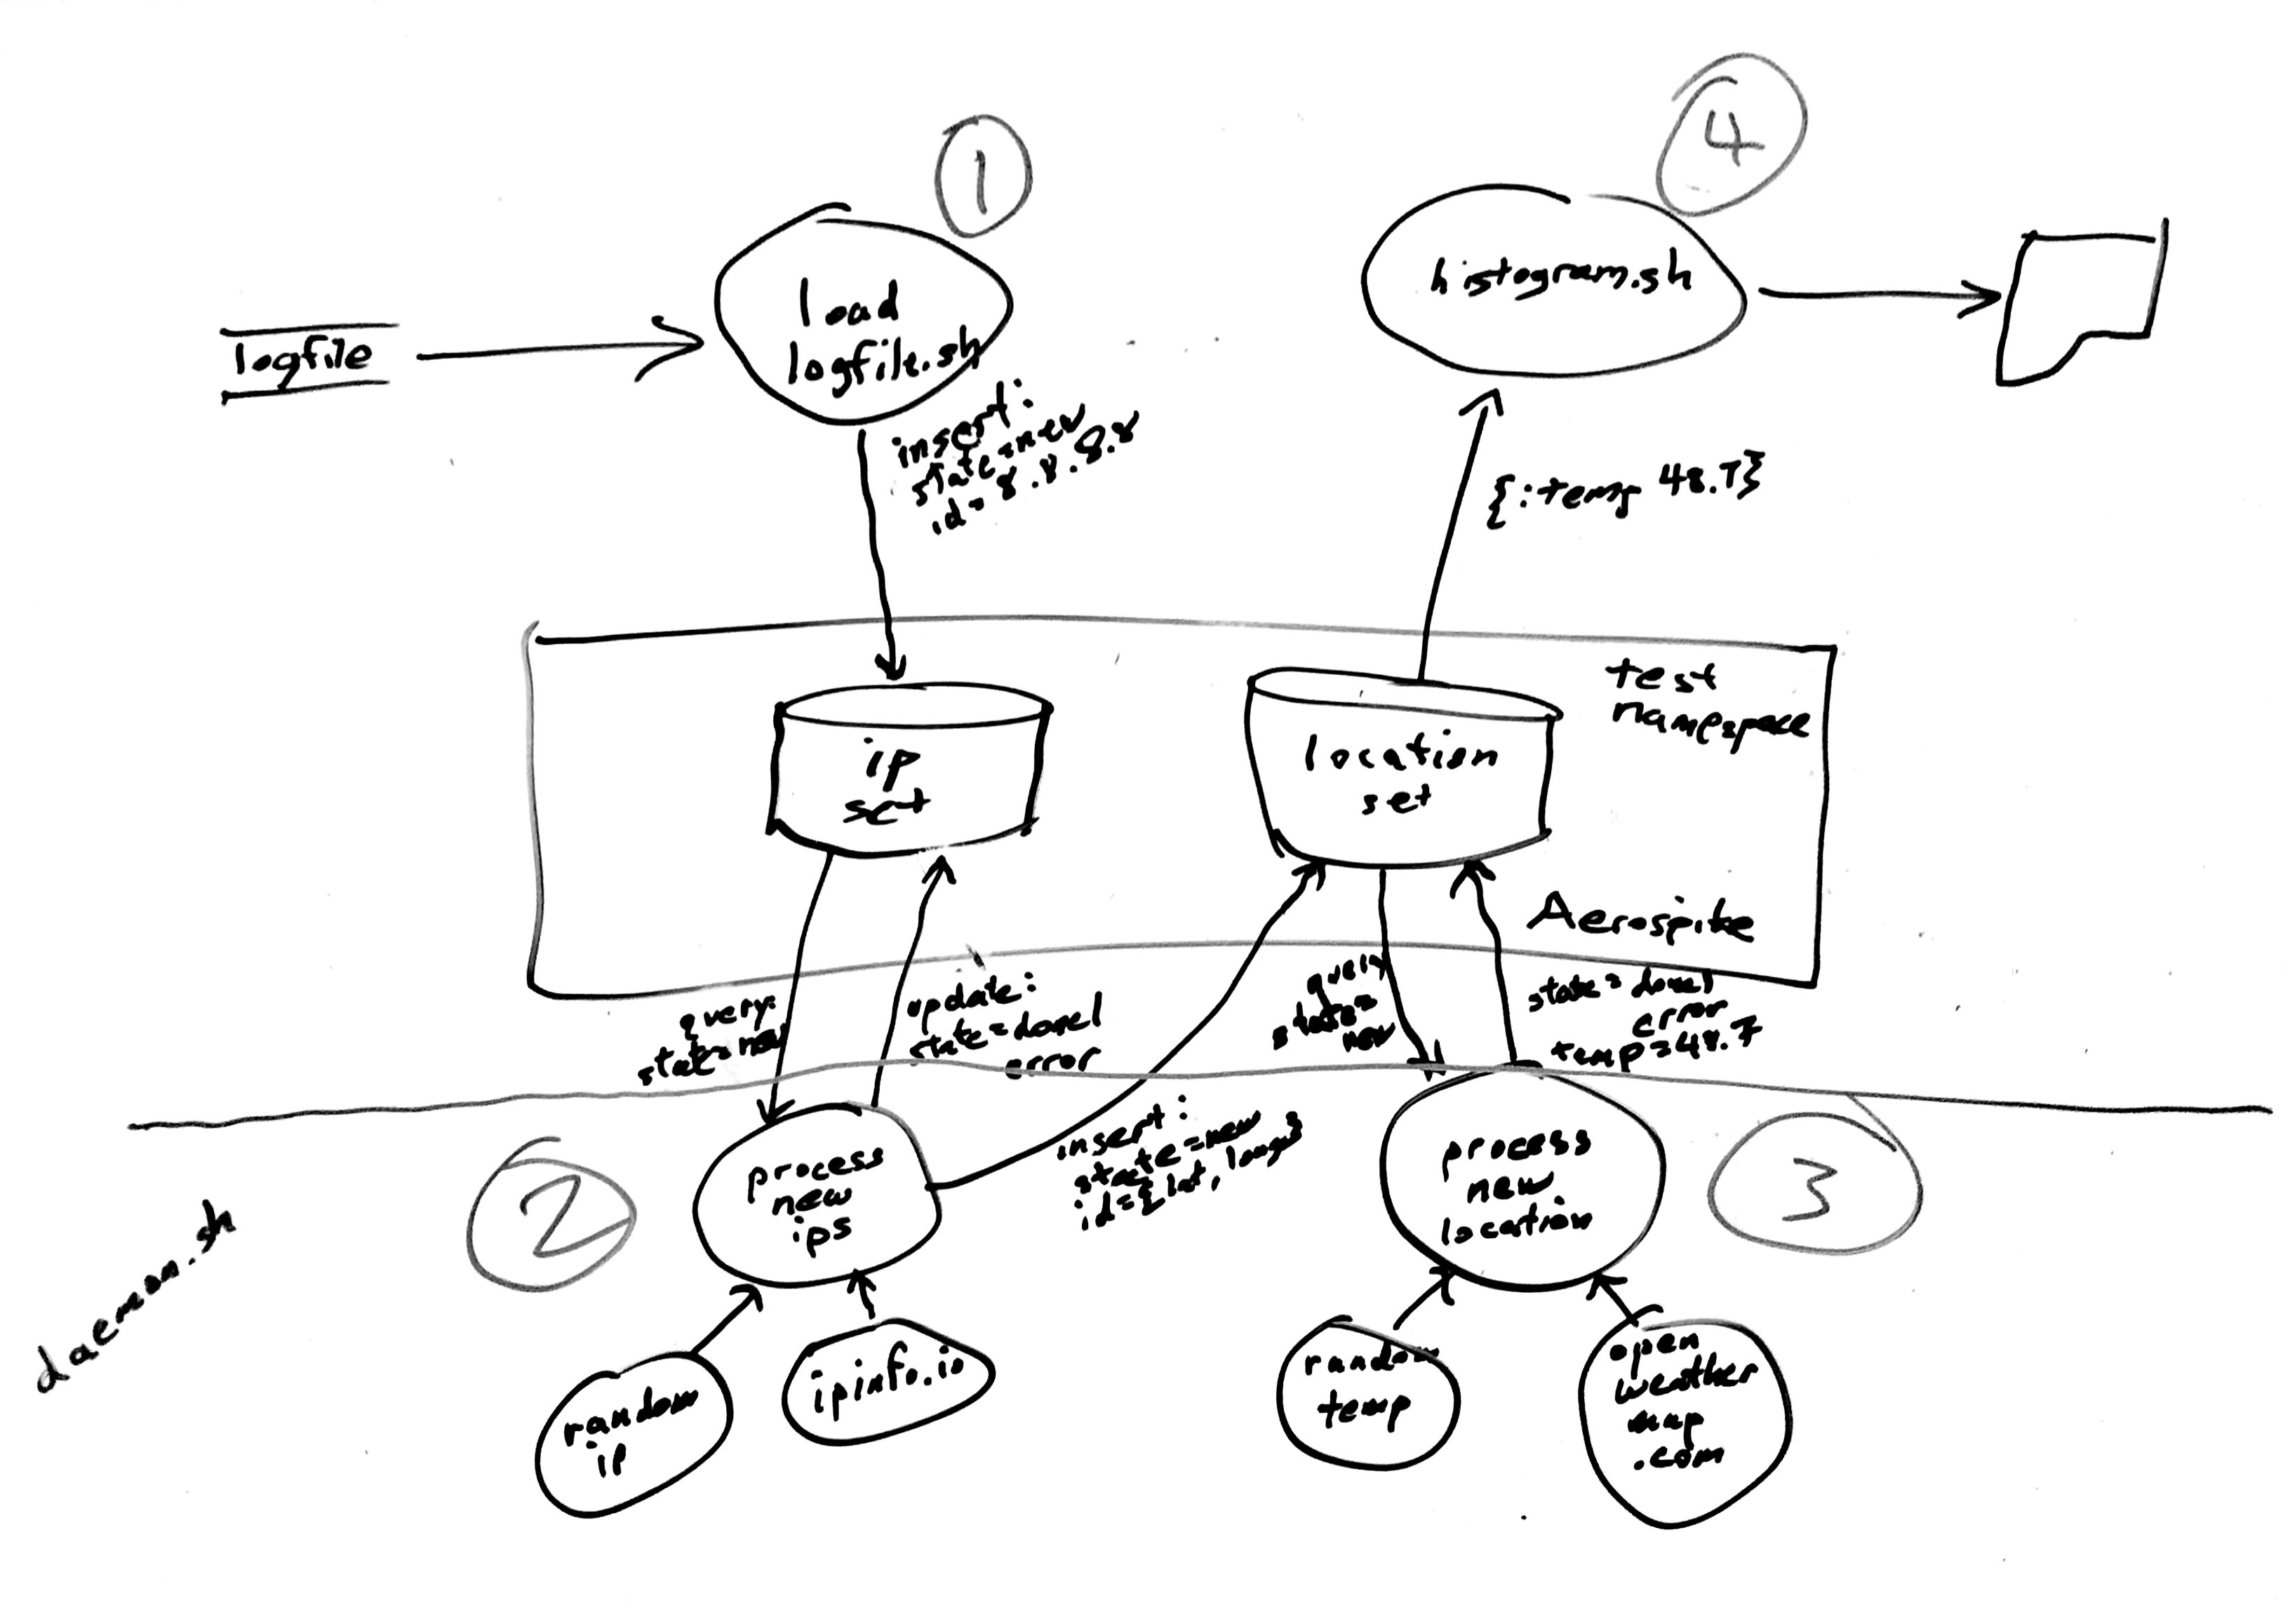 1
4
load
logfile.sh
histogram.sh
logfile
insert:
state=new
id=8.8.8.8
{:temp 48.7}
test
namespace
ip
set
location
set
Aerospike
query:
state=new
update:
state=done|
error
query
state=
new
state=done|
error
temp=48.7
insert:
state=new
id={lat, long}
2
process
new
ips
process
new
location
3
daemon.sh
random
ip
ipinfo.io
random
temp
open
weather
map
.com